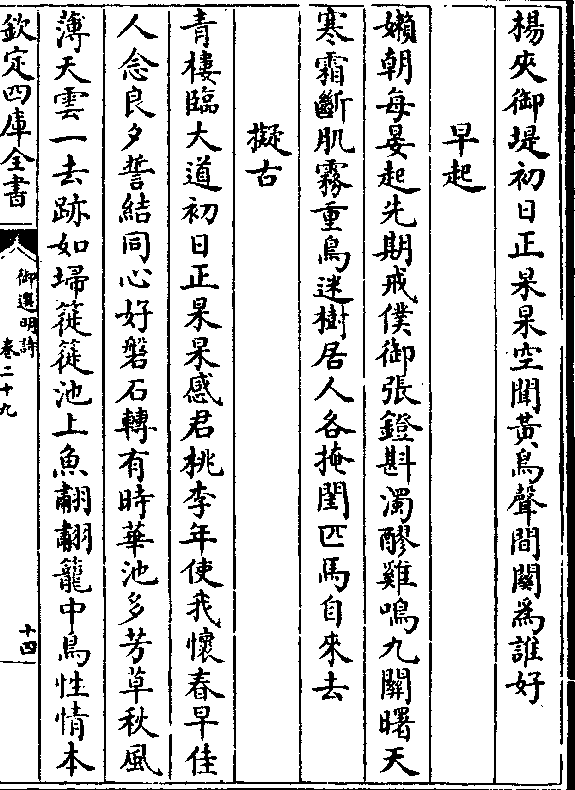 楊夾御堤初日正杲杲空聞黃鳥聲間關為誰好
早起
嬾朝每晏起先期戒僕御張鐙斟濁醪雞鳴九關曙天
寒霜斷肌霧重鳥迷樹居人各掩閨匹馬自來去
擬古
青樓臨大道初日正杲杲感君桃李年使我懷春早佳
人念良夕誓結同心好磐石轉有時華池多芳草秋風
薄天雲一去跡如埽簁簁池上魚翩翩籠中鳥性情本
欽定四庫全書
御選明詩
卷二十九
十四